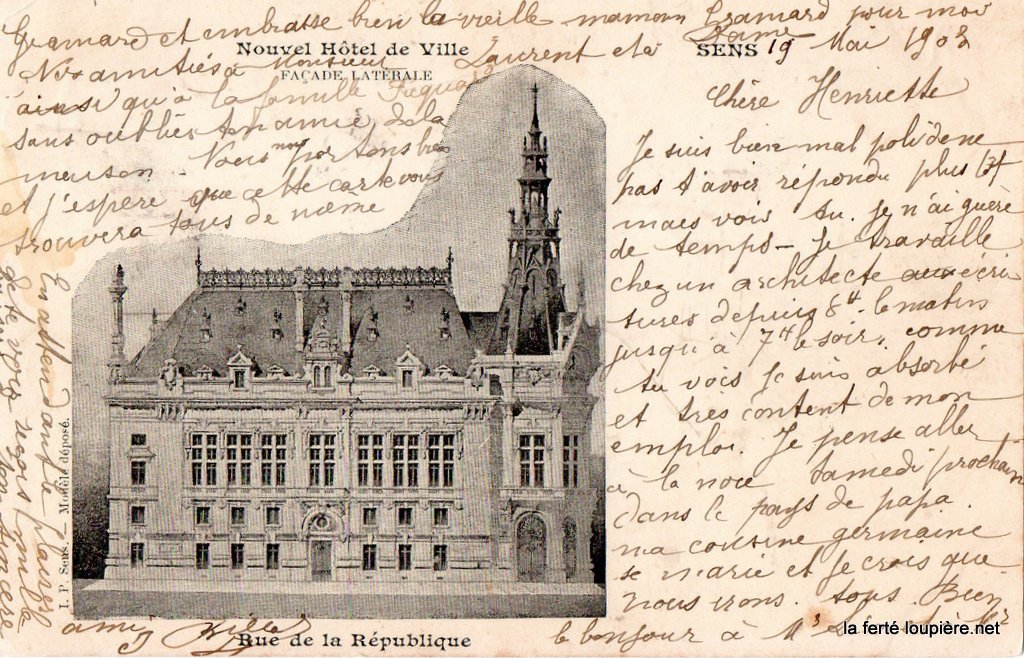 Nouvel Hôtel de Ville
FAÇADE LATÉRALE
SENS 19 Mai 1908
Chère Henriette
Je suis bien mal poli de ne
pas t'avoir répondu plus
mais vois tu je n'ai guère
de temps - Je travaille
chez un architecte aux écri
tures depuis 8h le matin
jusqu'à 7h le soir, comme
tu vois Je suis absorbé
et très content de mon
emploi. Je pense aller
à la noce samedi prochain
dans le pays de papa
ma cousine germaine
se marie et Je crois que
nous irons tous. Bien
le bonjour à
Gramard et embrasse bien la vieille maman Gramard pour moi
Nos amitiés à Monsieur Laurent et a Dame
ainsi qu'à la famille
sans oublier ton amie de la
meuson. Nous nous portons bien
et j'espère que cette carte vous
trouvera tous de même
En attendant le plaisir
de te voir reçois
ton sincère
ami
I. P. Sens. — Modèle déposé.
Rue de la République
la ferté loupière.net